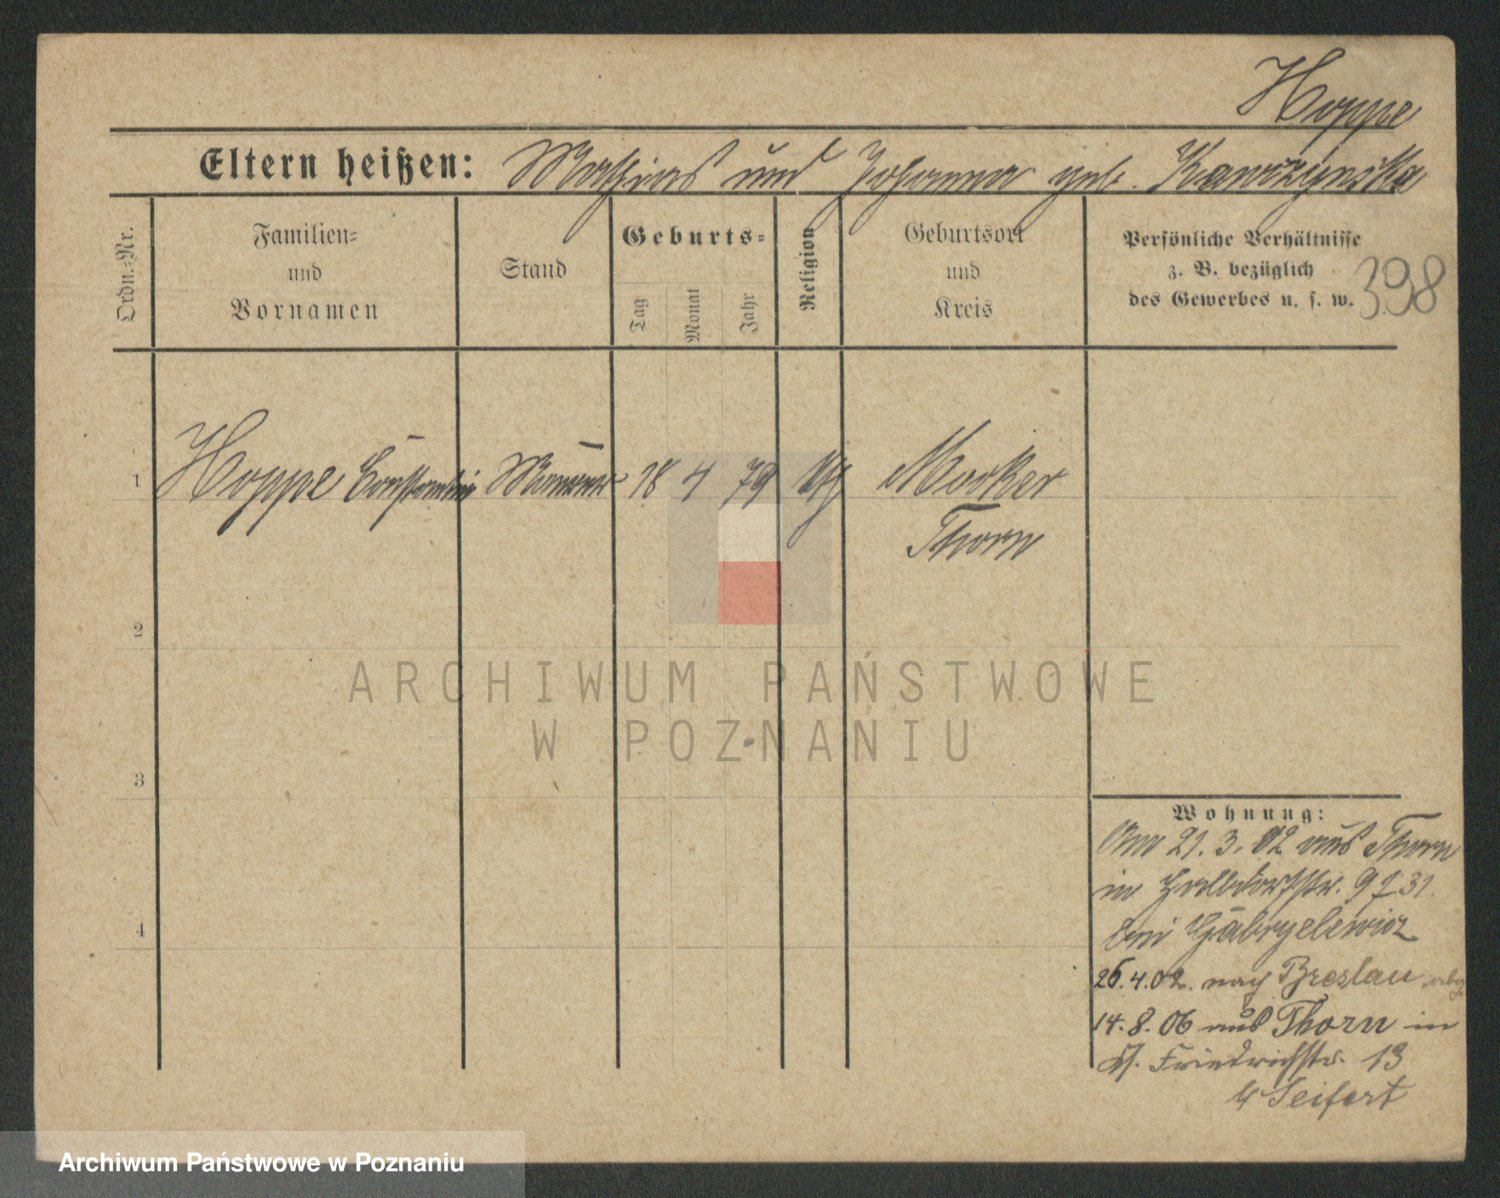 Hoppe
Eltern heißen: Mathias und Johanna geb. Kawczynska
Ordn.-Nr.
Familien-
und
Vornamen
Stand
Geburts-
Tag
Monat
Jahr
Religion
Geburtsort
und
Kreis
Persönliche Verhältnisse
z. B. bezüglich
des Gewerbes u. s. w.
398
1 Hoppe Constantin Maurer 18 4 79 Mocker
Thorn
2
3
4
Wohnung:
Am 21. 3. 02 aus Thorn
in Halbdorfstr. 9 31.
bei Gabryelewicz
26.4.02. nach Breslau abg
14.8.06 aus Thorn in
St. Friedrichstr. 13
b/ Seifert
ARCHIWUM PAŃSTWOWE
W POZNANIU
Archiwum Państwowe w Poznaniu